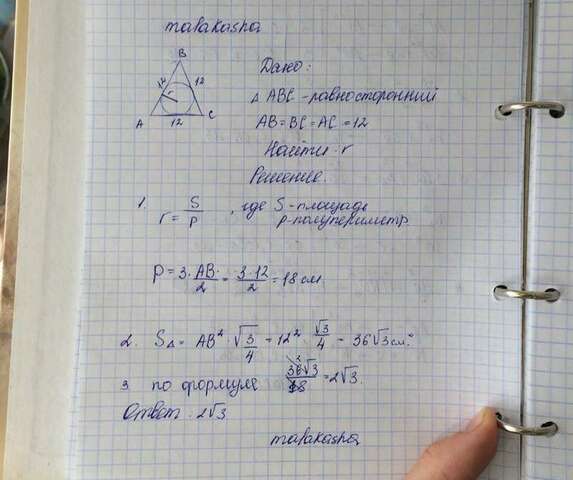 malakasha
B
12 r 12
A 12 C
Дано:
△ ABC - равносторонний
AB = BC = AC = 12
Найти: r
Решение.
1. r = S/p, где S - площадь
p - полупериметр.
P = 3·AB/2 = 3·12/2 = 18 см.
2. S△ = AB² · √3/4 = 12² · √3/4 = 36√3 см²
3 по формуле 36√3/18 = 2√3.
2
Ответ: 2√3
malakasha